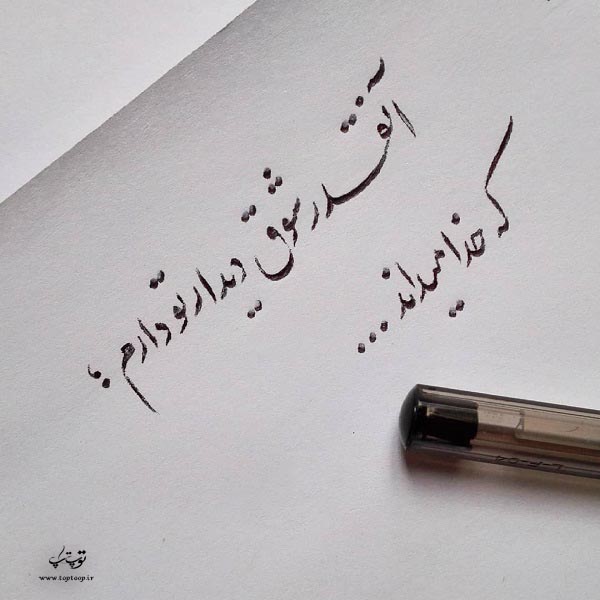 آنقدر شوق دیدار تو دارم؛
که خدا میداند...
توپ تاپ
www.toptoop.ir